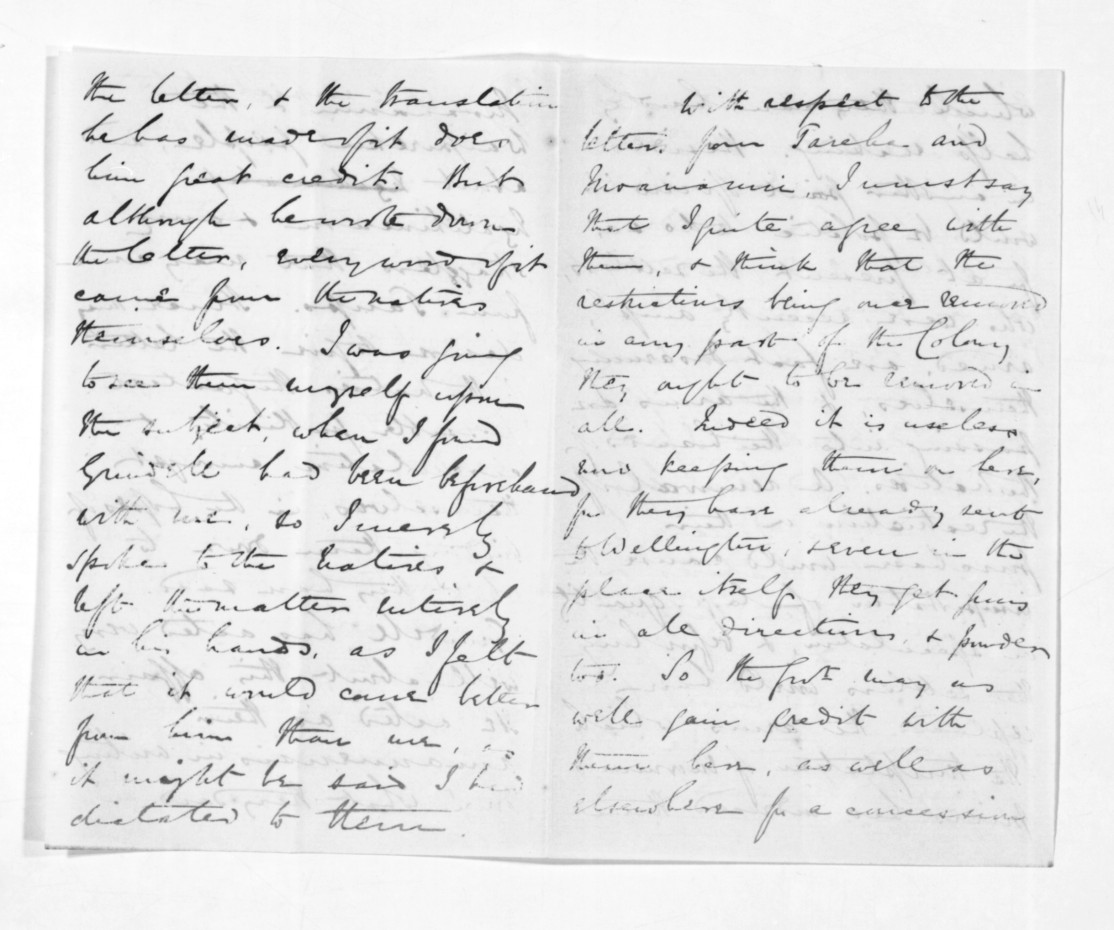 the letter, & the translation
he has made of it does
him great credit. But
although he wrote down
the letter, every word of it
came from the natives
themselves. I was going
to see them myself upon
the subject, when I found
Grindell had been beforehand
with me, so I merely
spoke to the Natives &
left the matter entirely
in his hands, as I felt
that it would come better
from him than me, as
it might be said I had
dictated to them.
With respect to the
letters from Tareha and
Moananui, I must say
that I quite agree with
them, & think that the
restrictions being once removed
in any part of the Colony
they ought to be removed in
all. Indeed it is useless
keeping them on here,
for they have already sent
to Wellington, & even in the
place itself they get guns
in all directions, & powder
too. So the Govt may as
well gain credit with
them here, as well as
elsewhere for a concession